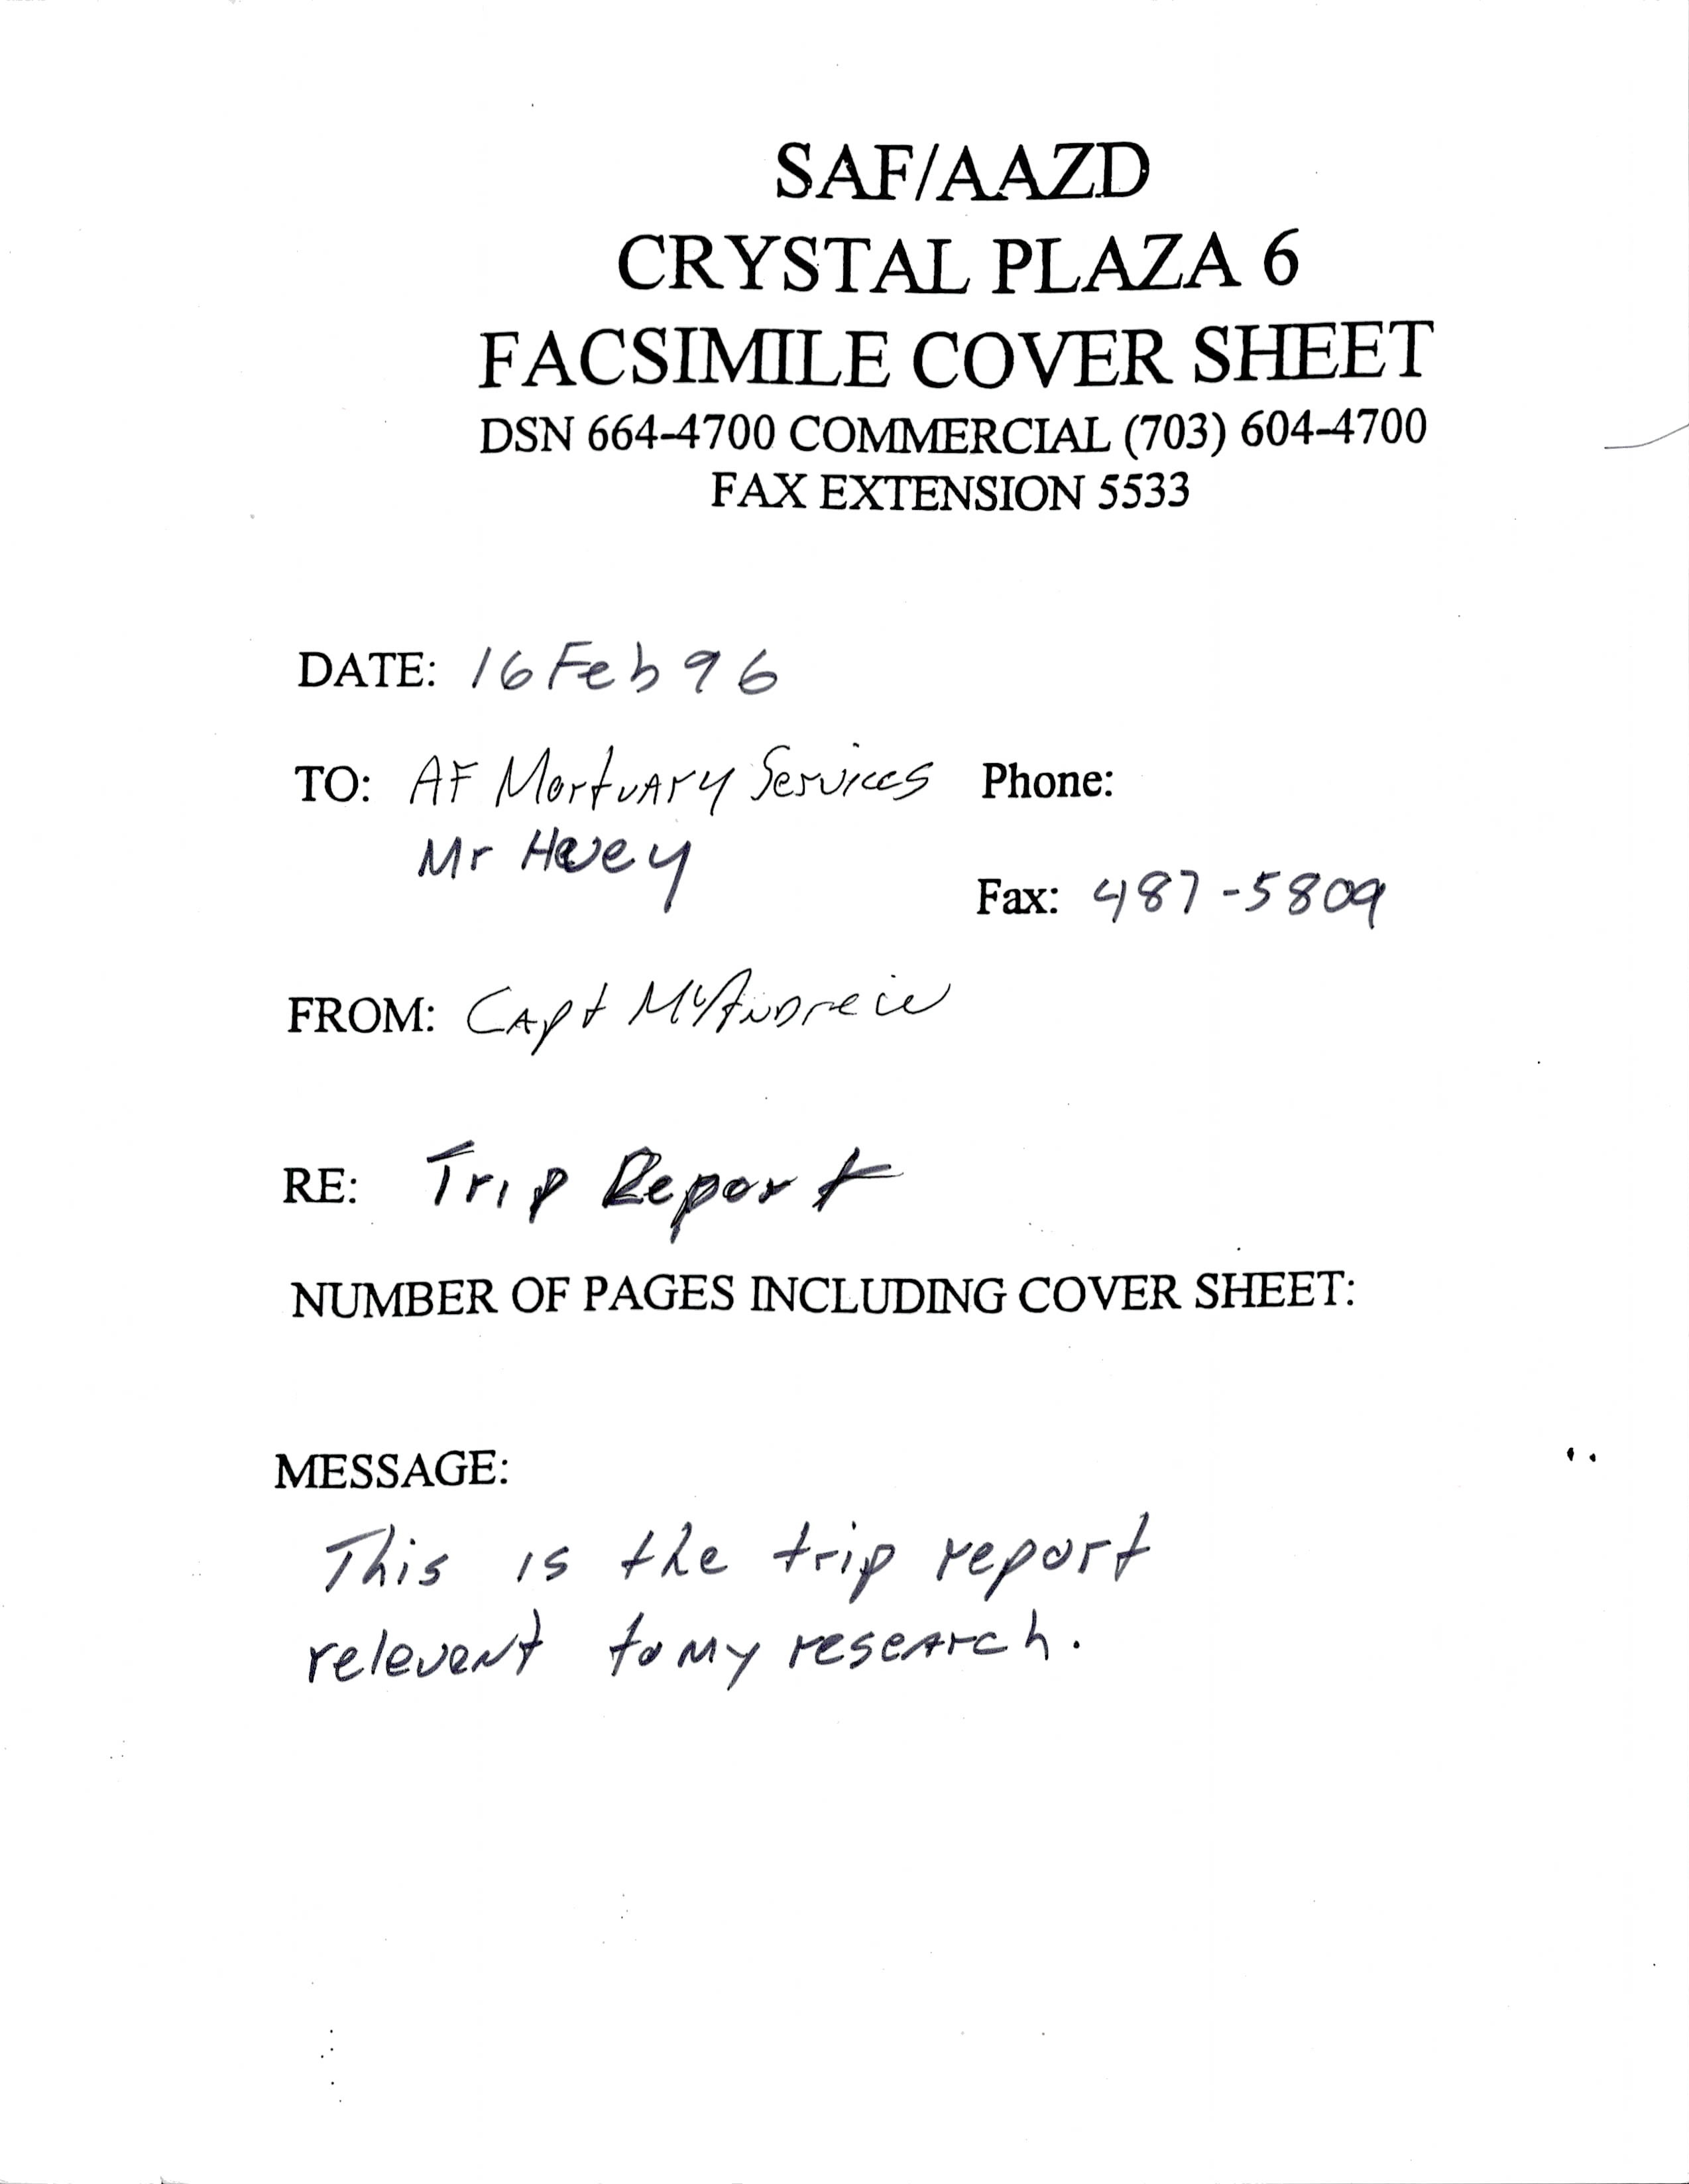 SAF/AAZD
CRYSTAL PLAZA 6
FACSIMILE COVER SHEET
DSN 664-4700 COMMERCIAL (703) 604-4700
FAX EXTENSION 5533
DATE: 16 Feb 96
TO: AF Mortuary Services Phone:
Mr
Fax: 487-5809
FROM: Capt McAndrew
RE: Trip Report
NUMBER OF PAGES INCLUDING COVER SHEET:
MESSAGE:
This is the trip report
relevent to my research.